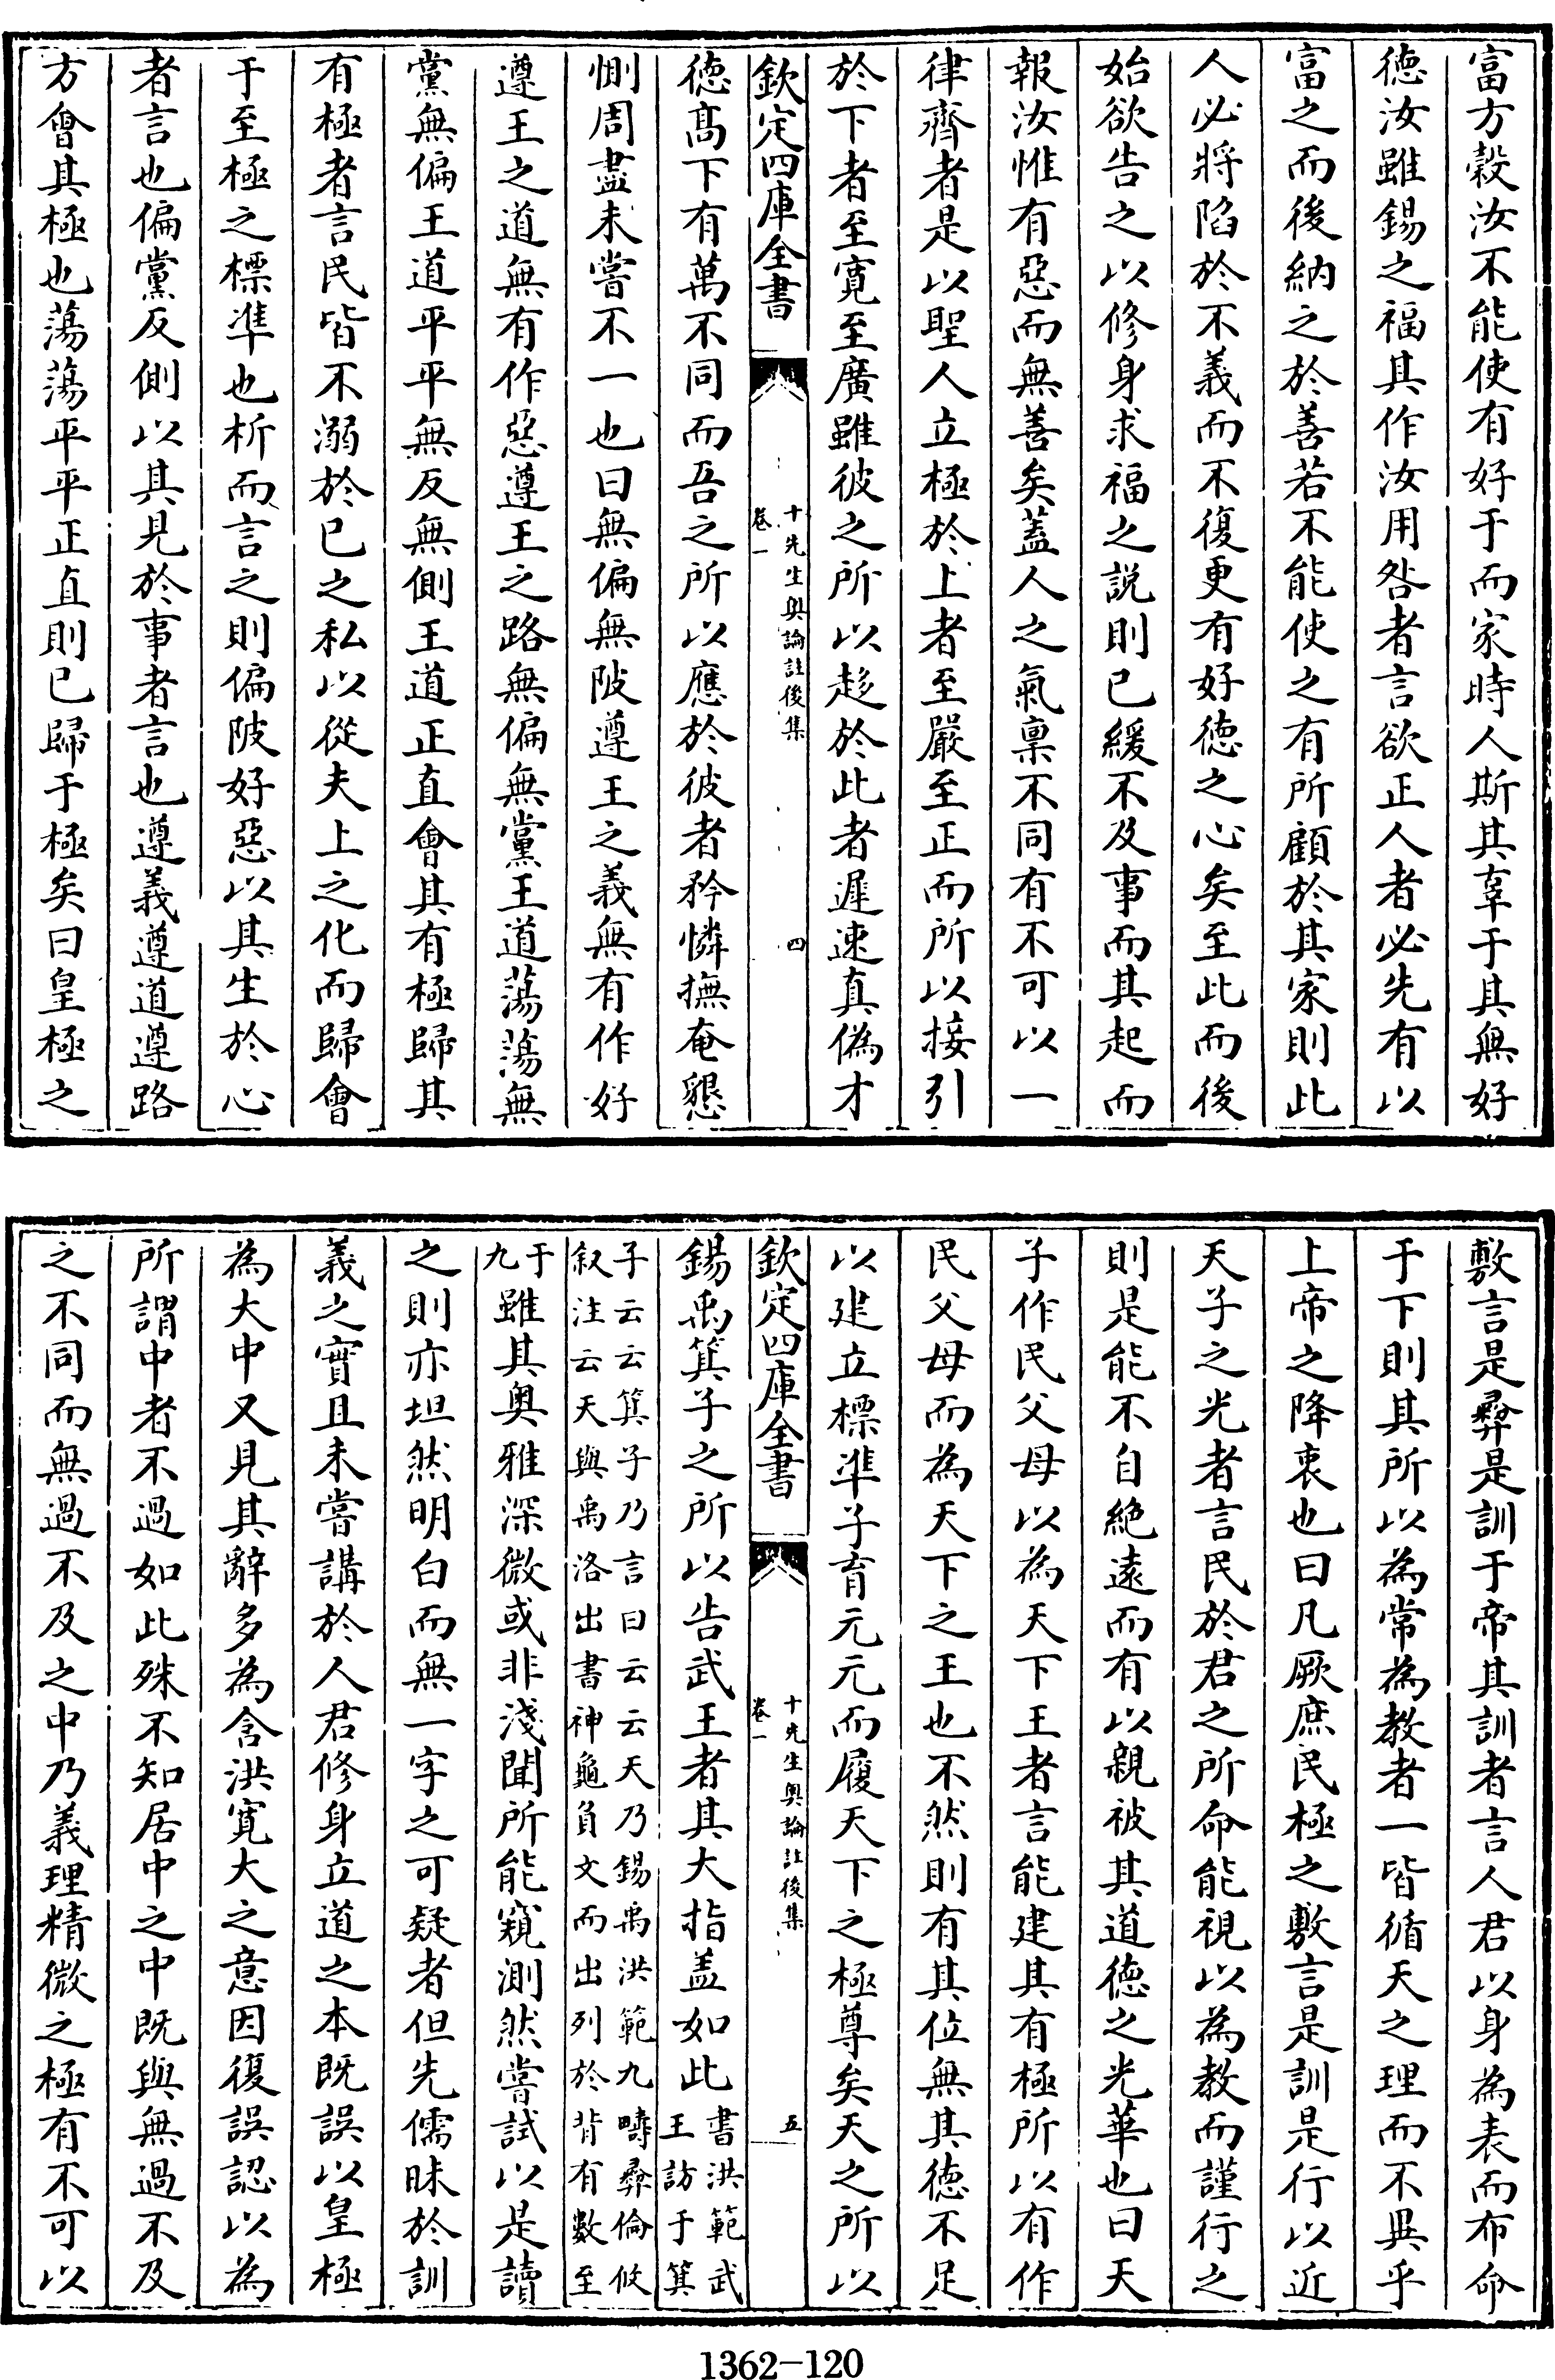 富方糓汝不能使有好于而家時人斯其辜于其無好
德汝雖錫之福其作汝用咎者言欲正人者必先有以
富之而後納之於善若不能使之有所顧於其家則此
人必將陷於不義而不復更有好徳之心矣至此而後
始欲告之以修身求福之説則已緩不及事而其起而
報汝惟有惡而無善矣蓋人之氣稟不同有不可以一
律齊者是以聖人立極於上者至嚴至正而所以接引
於下者至寛至廣雖彼之所以趍於此者遲速真偽才
欽定四庫全書
十先生奥論註後集
卷一
四
徳髙下有萬不同而吾之所以應於彼者矜憐撫奄懇
惻周盡未嘗不一也曰無偏無陂遵王之義無有作好
遵王之道無有作惡遵王之路無偏無黨王道蕩蕩無
黨無偏王道平平無反無側王道正直會其有極歸其
有極者言民皆不溺於已之私以從夫上之化而歸會
于至極之標凖也析而言之則偏陂好惡以其生於心
者言也偏黨反側以其見於事者言也遵義遵道遵路
方會其極也蕩蕩平平正直則已歸于極矣曰皇極之
敷言是彛是訓于帝其訓者言人君以身為表而布命
于下則其所以為常為教者一皆循天之理而不異乎
上帝之降衷也曰凡厥庶民極之敷言是訓是行以近
天子之光者言民於君之所命能視以為教而謹行之
則是能不自絶逺而有以親被其道徳之光華也曰天
子作民父母以為天下王者言能建其有極所以有作
民父母而為天下之王也不然則有其位無其德不足
以建立標凖子育元元而履天下之極尊矣天之所以
欽定四庫全書
十先生奥論註後集
卷一
五
錫禹箕子之所以告武王者其大指盖如此書洪範武
王訪于箕
子云云箕子乃言曰云云天乃錫禹洪範九疇彛倫攸
叙注云天與禹洛出書神龜負文而出列於背有數至
于
九雖其奥雅深微或非淺聞所能窺測然嘗試以是讀
之則亦坦然明白而無一字之可疑者但先儒昧於訓
義之實且未嘗講於人君修身立道之本既誤以皇極
為大中又見其辭多為含洪寛大之意因復誤認以為
所謂中者不過如此殊不知居中之中既與無過不及
之不同而無過不及之中乃義理精微之極有不可以
1362-120